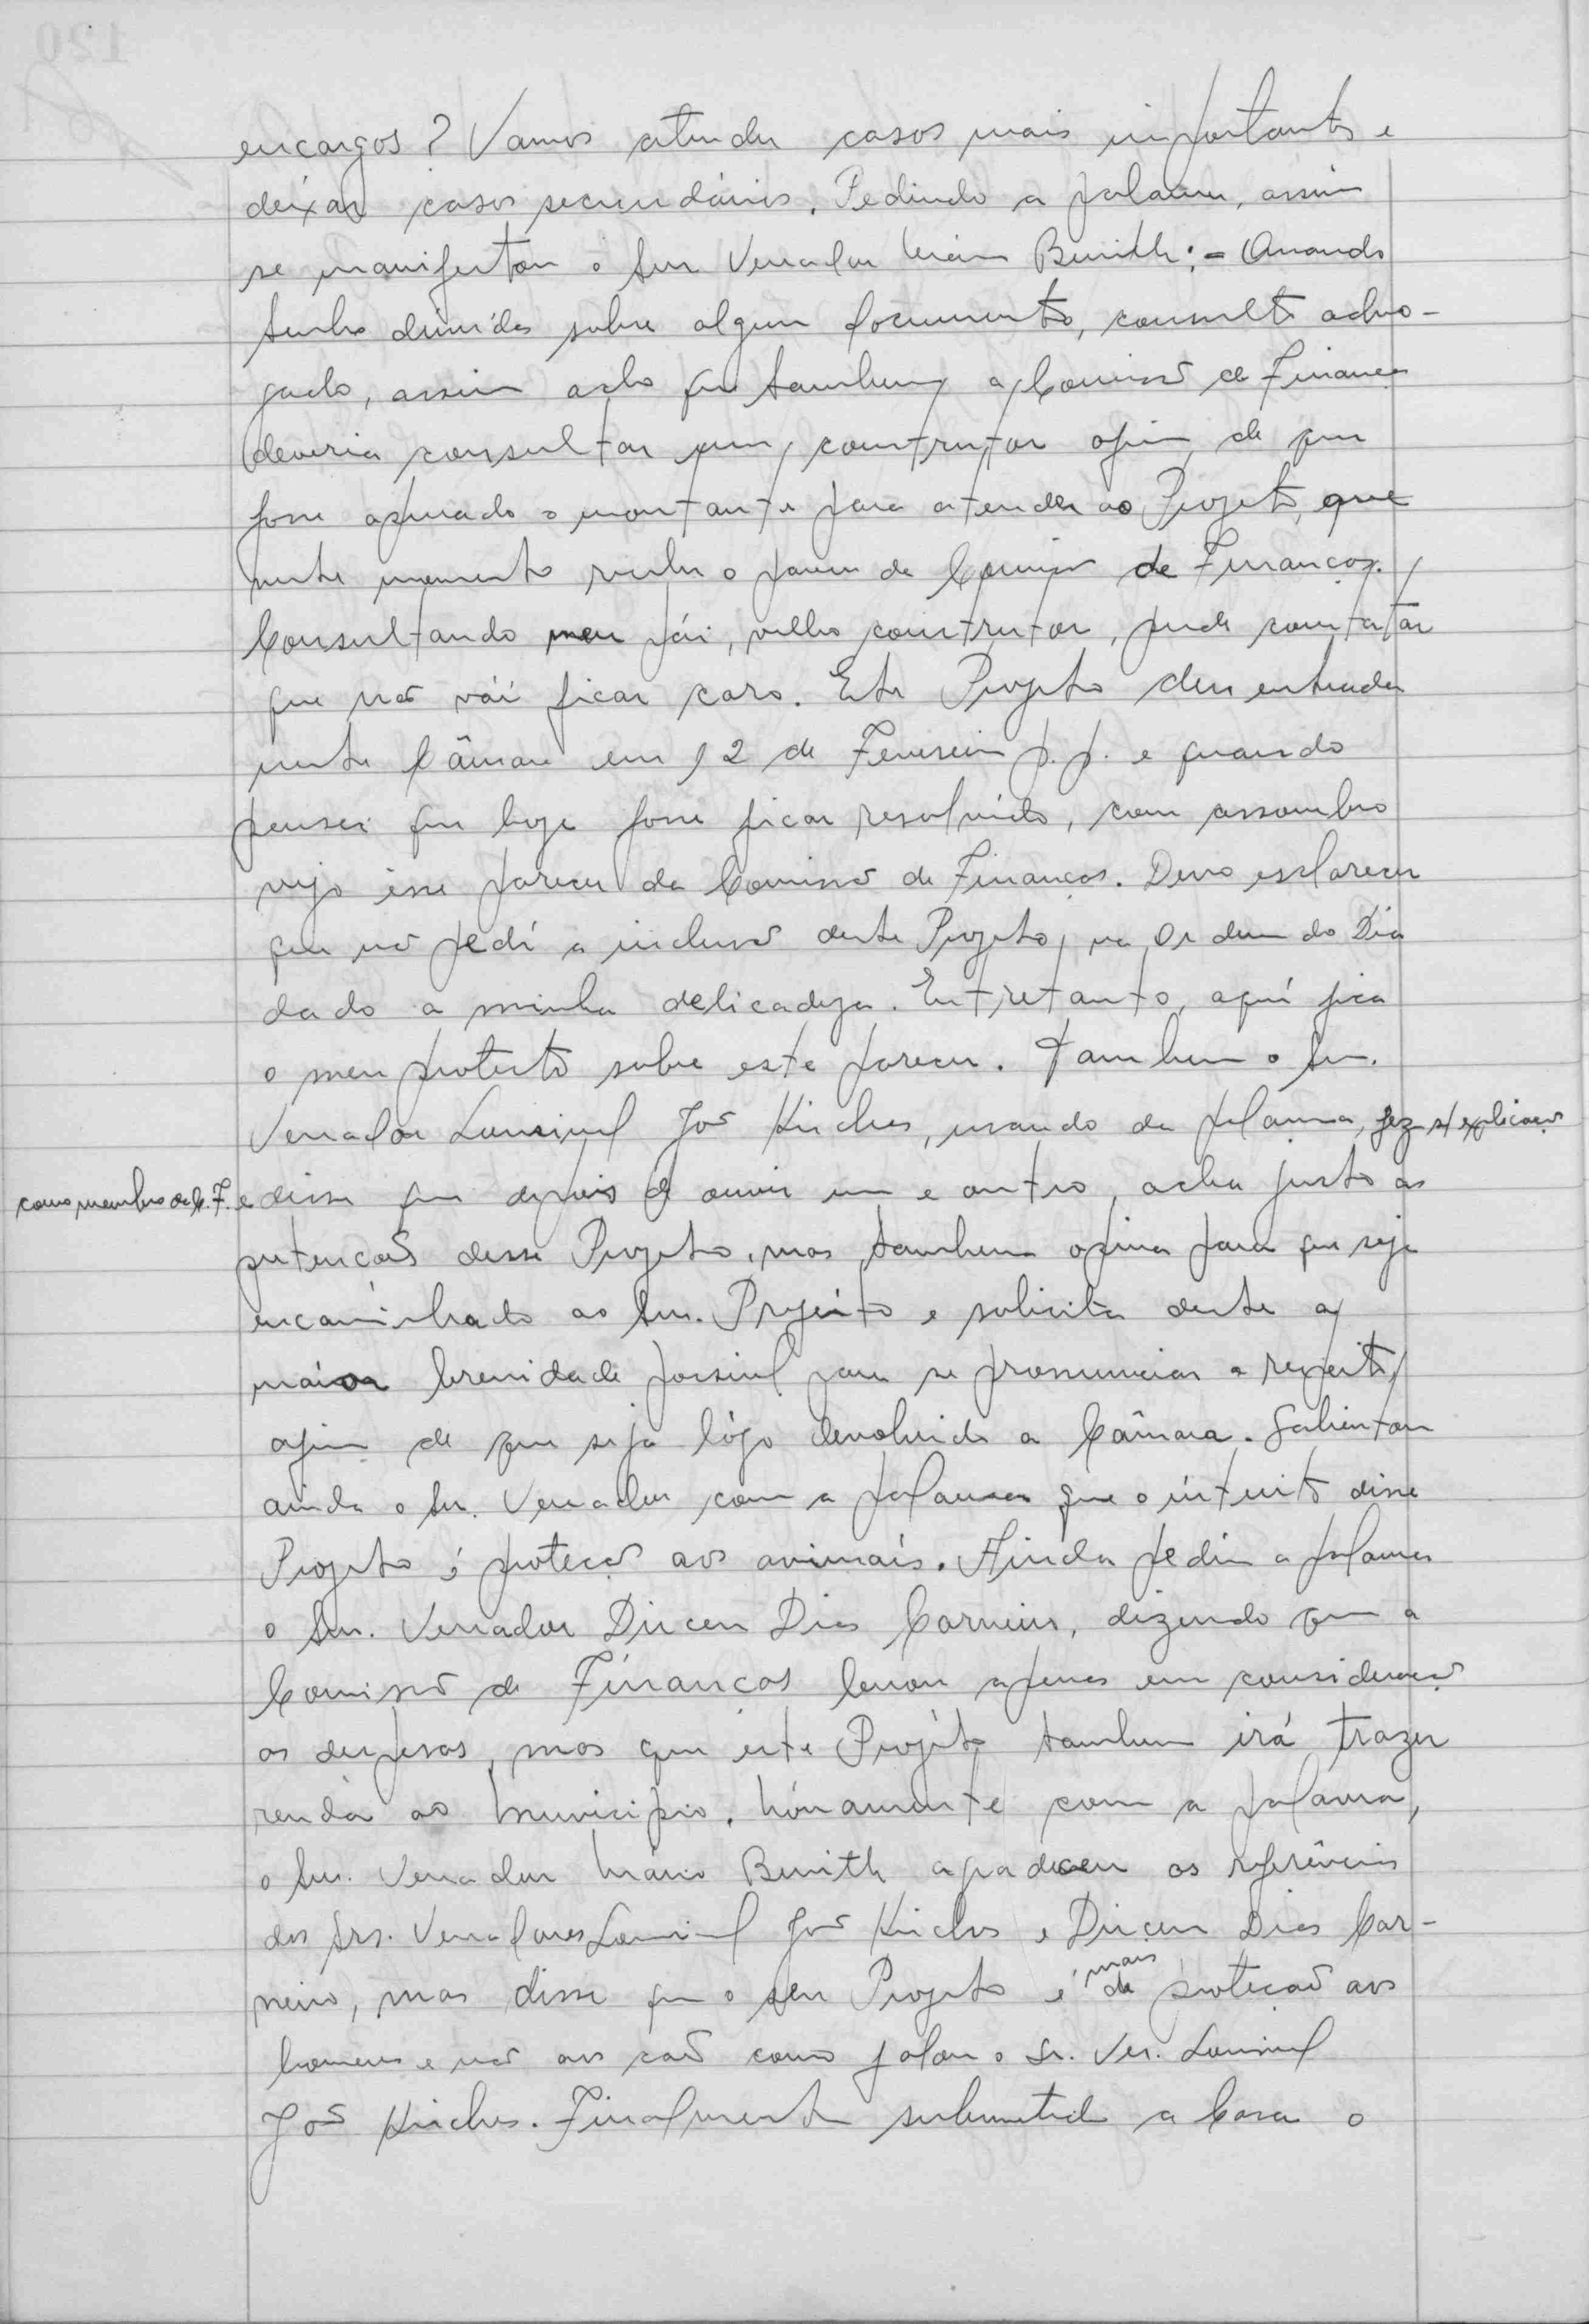 encargos? Vamos atender casos mais importantes e
deixar casos secundários. Pedindo a palavra, assim
se manifestou o Snr. Vereador Mário Benith:= Quando
tenho dúvidas sobre algum documento, consulto advo-
gado, assim acho que tambem a Comissão de Finanças
deveria consultar um construtor afim de que
fosse apurado o montante para atender ao Projeto, que
neste momento recebe o parecer da Comissão de Finanças.
Consultando meu pái, velho construtor, pude constatar
que não vái ficar caro. Este Projeto deu entrada
nesta Câmara em 12 de Fevereiro p.p. e quando
pensei que hoje fosse ficar resolvido, com assombro
vejo êsse parecer da Comissão de Finanças. Devo esclarecer
que não pedí a inclusão deste Projeto, na Ordem do Dia
dado a minha delicadeza. Entretanto, aquí fica
o meu protesto sobre este parecer. Tambem o Sr.
Vereador Lourival José Kirches, usando da palavra, fez s/ explicação
como membro da C.F. e disse que depois de ouvir um e outro, acha justo as
pretenções desse Projeto, mas tambem opina para que seja
encaminhado ao Snr. Prefeito e solicita deste a
maior brevidade possivel para se pronunciar a respeito,
afim de que seja lógo devolvido a Câmara. Salientou
ainda o Sr. Vereador com a palavra que o intuito desse
Projeto é proteção aos animais. Ainda pediu a palavra
o Snr. Vereador Dirceu Dias Carneiro, dizendo que a
Comissão de Finanças levou apenas em consideração
as despesas, mas que este Projéto tambem irá trazer
renda ao Municipio. Nóvamente com a palavra,
o Snr. Vereador Mário Benith agradeceu as referências
dos Srs. Vereadores Lourival José Kirches e Dirceu Dias Car-
neiro, mas disse que o seu Projeto é mais de proteção aos
homens e não aos cães como falou o Sr. Ver. Lourival
José Kirches. Finalmente submetido a Casa o